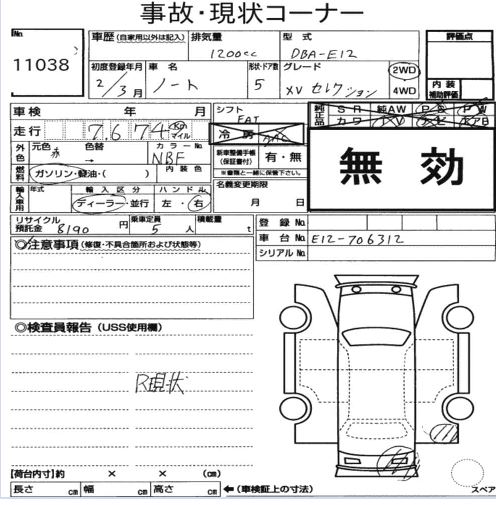 事故・現状コーナー
No.
11038
車歴 (自家用以外は記入)
排気量
1200cc
型式
DBA-E12
評価点
初度登録年月
2/3月
車名
ノート
形状・ドア数
5
グレード
XV セレクション
2WD
4WD
内装
補助評価
車検 年 月
シフト
FAT
純正品
走行
7.674 Km マイル
冷房
外色
元色
赤
色替
→
カラーNo.
NBF
新車整備手帳
(保証書付)
有・無
※書類と一緒に保管下さい。
無効
燃料
ガソリン・軽油・( )
内装色
名義変更期限
月 日
輸入車用
年式
輸入区分
ディーラー・並行
ハンドル
左・右
リサイクル
預託金
8190 円
乗車定員
5 人
積載量
t
登録No.
車台No. E12-706312
シリアルNo.
◎注意事項 (修復・不具合箇所および状態等)
◎検査員報告 (USS使用欄)
R現状
【荷台内寸】約 × × (cm)
長さ cm 幅 cm 高さ cm ←(車検証上の寸法)
スペア